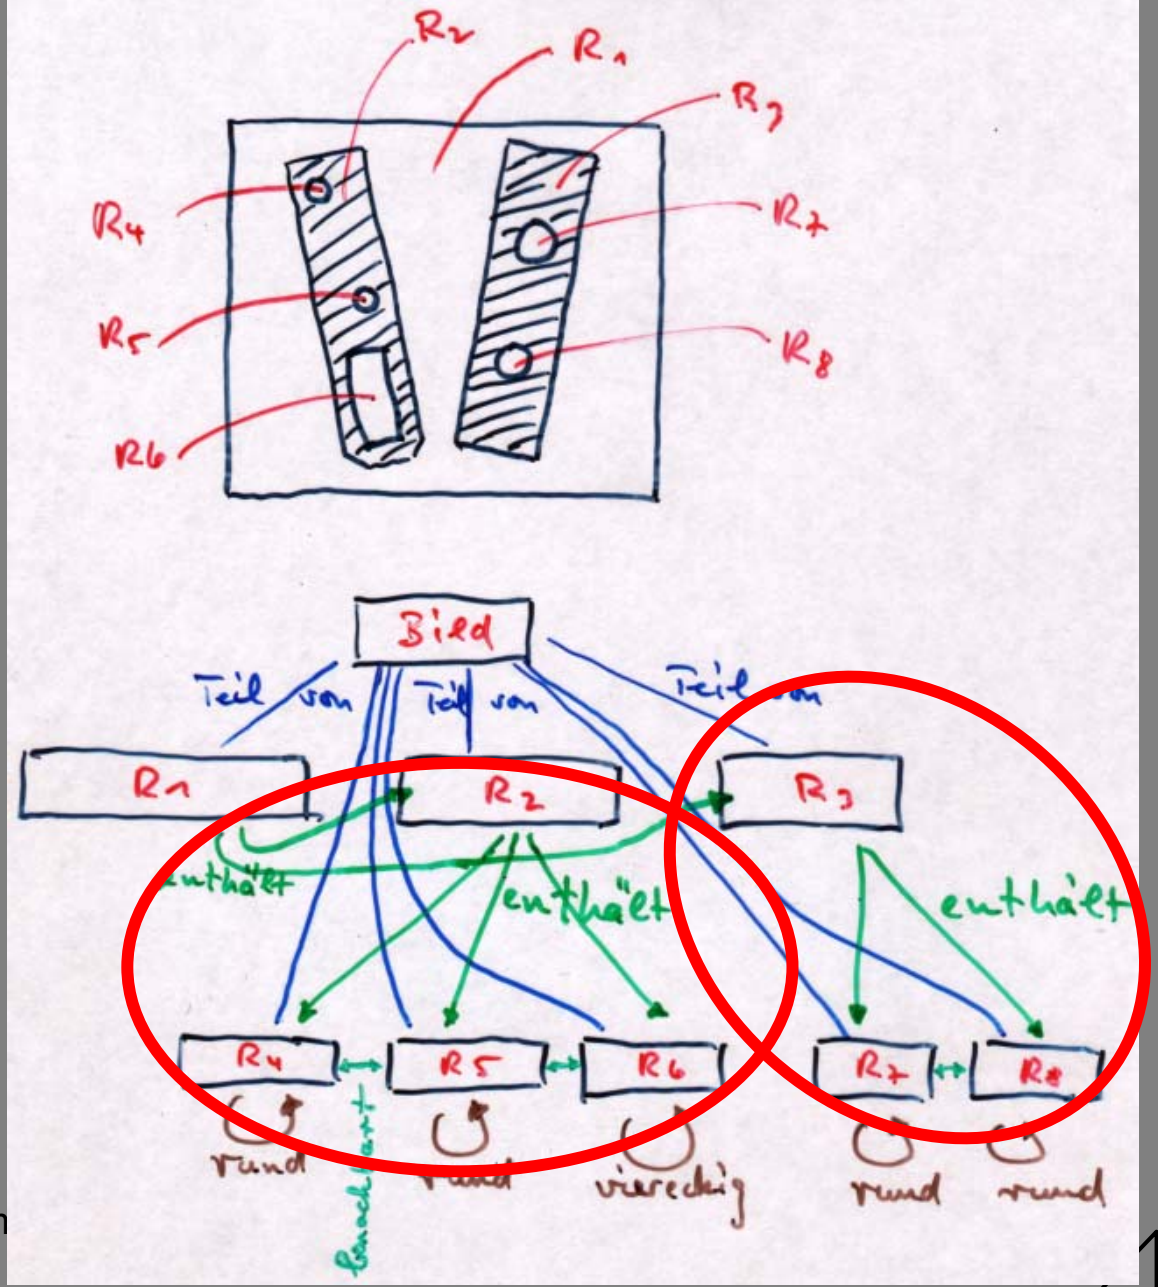 R2
R1
R3
R4
R7
R5
R8
R6
Bild
Teil von Teil von Teil von
R1 R2 R3
enthält enthält enthält
R4 R5 R6 R7 R8
benachbart
rund rund viereckig rund rund